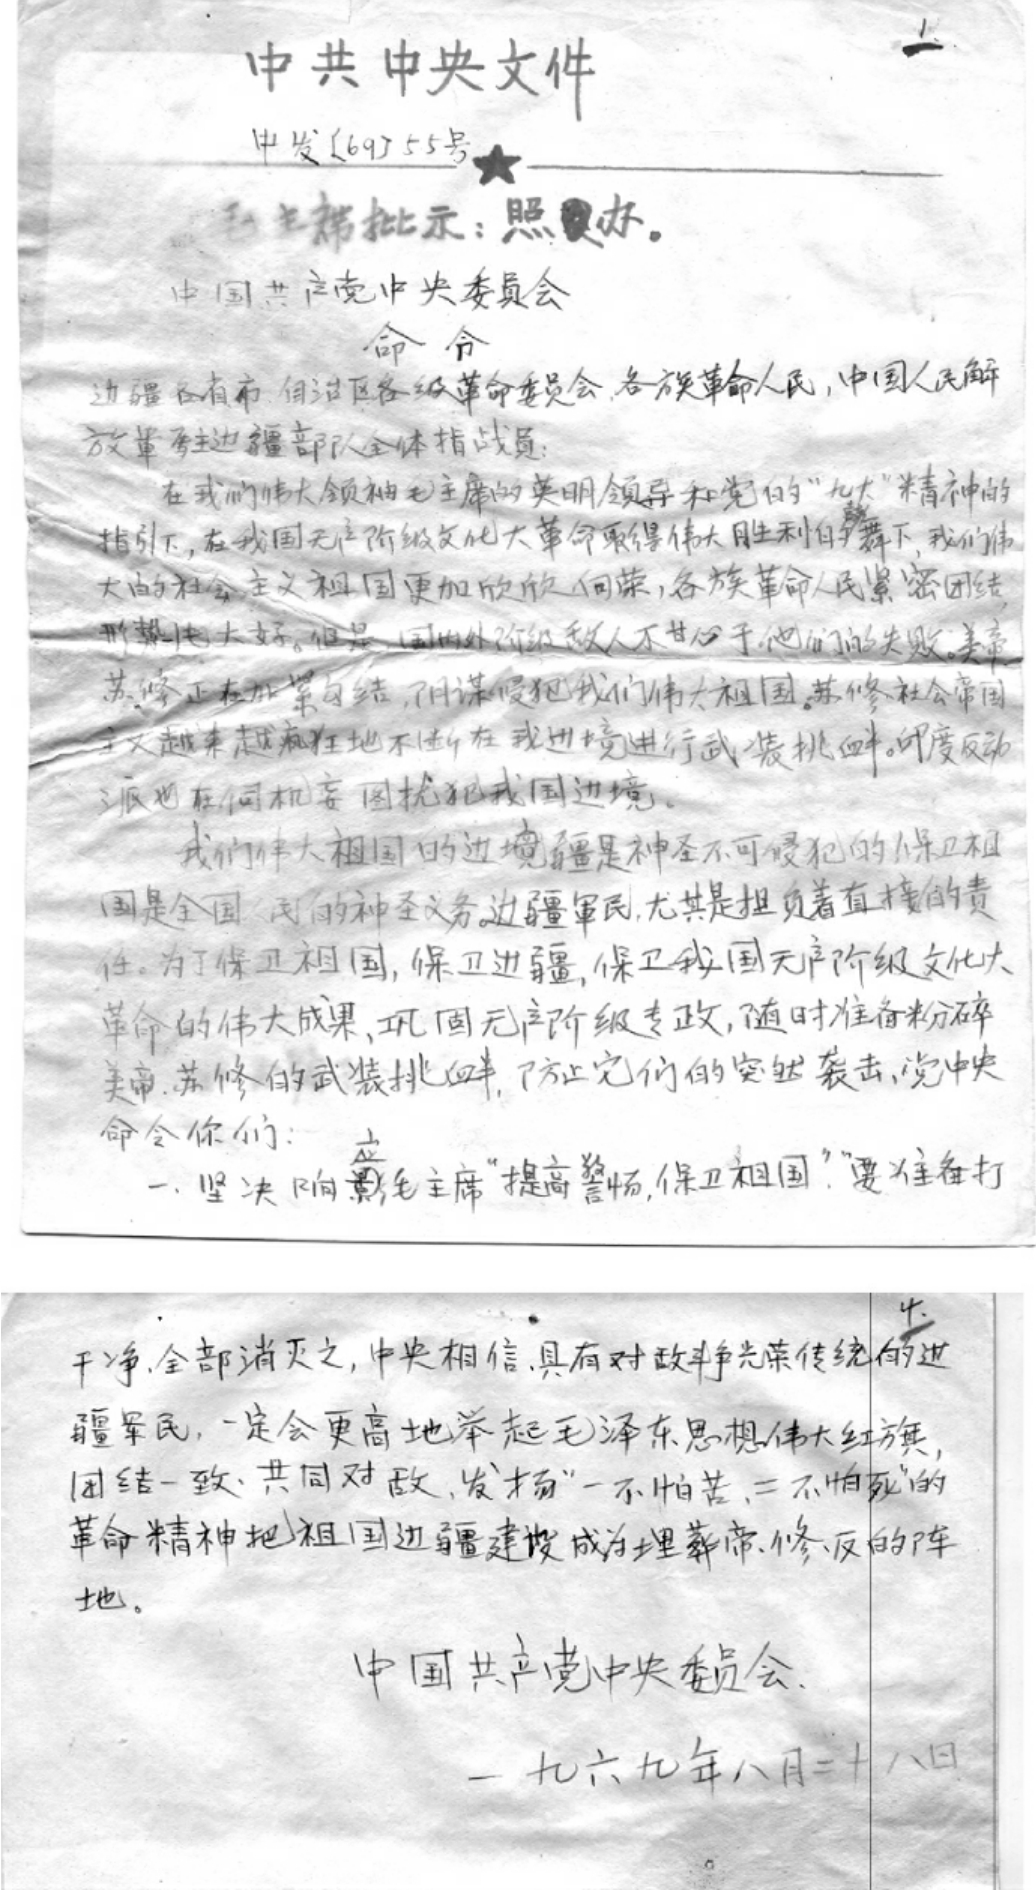 1.
中共中央文件
中发〔69〕55号
毛主席批示：照办。
中国共产党中央委員会
命令
边疆各省市、自治区各级革命委員会，各族革命人民，中国人民解
放軍驻边疆部队全体指战員：
在我们伟大领袖毛主席的英明领导和党的“九大”精神的
指引下，在我国无产阶级文化大革命取得伟大胜利的鼓舞下，我们伟
大的社会主义祖国更加欣欣向荣，各族革命人民紧密团结，
形势大好。但是，国内外阶级敌人不甘心于他们的失败。美帝
苏修正在加紧勾结，阴谋侵犯我们伟大祖国。苏修社会帝国
主义越来越疯狂地不断在我边境进行武装挑衅。印度反动
派也在伺机妄图扰犯我国边境。
我们伟大祖国的边境疆是神圣不可侵犯的，保卫祖
国是全国人民的神圣义务。边疆軍民，尤其是担負着直接的责
任。为了保卫祖国，保卫边疆，保卫我国无产阶级文化大
革命的伟大成果，巩固无产阶级专政，随时准备粉碎
美帝、苏修的武装挑衅，防止它们的突然袭击，党中央
命令你们：
一、坚决响应毛主席“提高警惕，保卫祖国”，“要准备打
4.
干净、全部消灭之，中央相信，具有对敌斗争光荣传统的边
疆軍民，一定会更高地举起毛泽东思想伟大红旗，
团结一致、共同对敌，发扬“一不怕苦、二不怕死”的
革命精神把祖国边疆建设成为埋葬帝、修、反的阵
地。
中国共产党中央委員会.
一九六九年八月二十八日